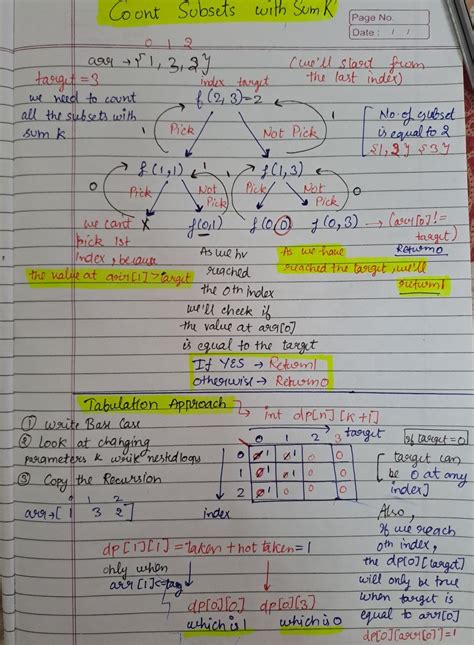 Count Subsets with Sum K
Page No.
Date : / /
0 1 2
arr → {1, 3, 2}
(we'll start from
the last index)
target = 3
index target
we need to count
all the subsets with
sum k
f(2,3)=2
No of subset
is equal to 2
{1,2} {3}
1
1
Pick
Not Pick
f(1,1)
f(1,3)
0
1
1
0
Pick
Not
Pick
Pick
Not
Pick
we cant
pick 1st
index, because
the value at arr[1] > target
X
f(0,1)
f(0,0)
f(0,3) → (arr[0]!=
target)
Return 0
As we hv
reached
the 0th index
we'll check if
the value at arr[0]
is equal to the target
As we have
reached the target, we'll
return 1
If YES → Return 1
otherwise → Return 0
Tabulation Approach
int dp[n][k+1]
① Write Base Case
② Look at changing
parameters & write nested loops
③ Copy the Recursion
0 1 2
arr → [ 1 3 2 ]
0 1 2 3 target
0 0 1 0 1 0 0
1 0 1 0 1 0 0
2 0 1 0 0 0
index
If target = 0
target can
be 0 at any
index]
Also,
If we reach
0th index,
the dp[0][target]
will only be true
when target is
equal to arr[0]
dp[0][arr[0]]=1
dp[1][1] = taken + not taken = 1
only when
arr[1]<=tag
dp[0][0] dp[0][3]
which is 1 which is 0